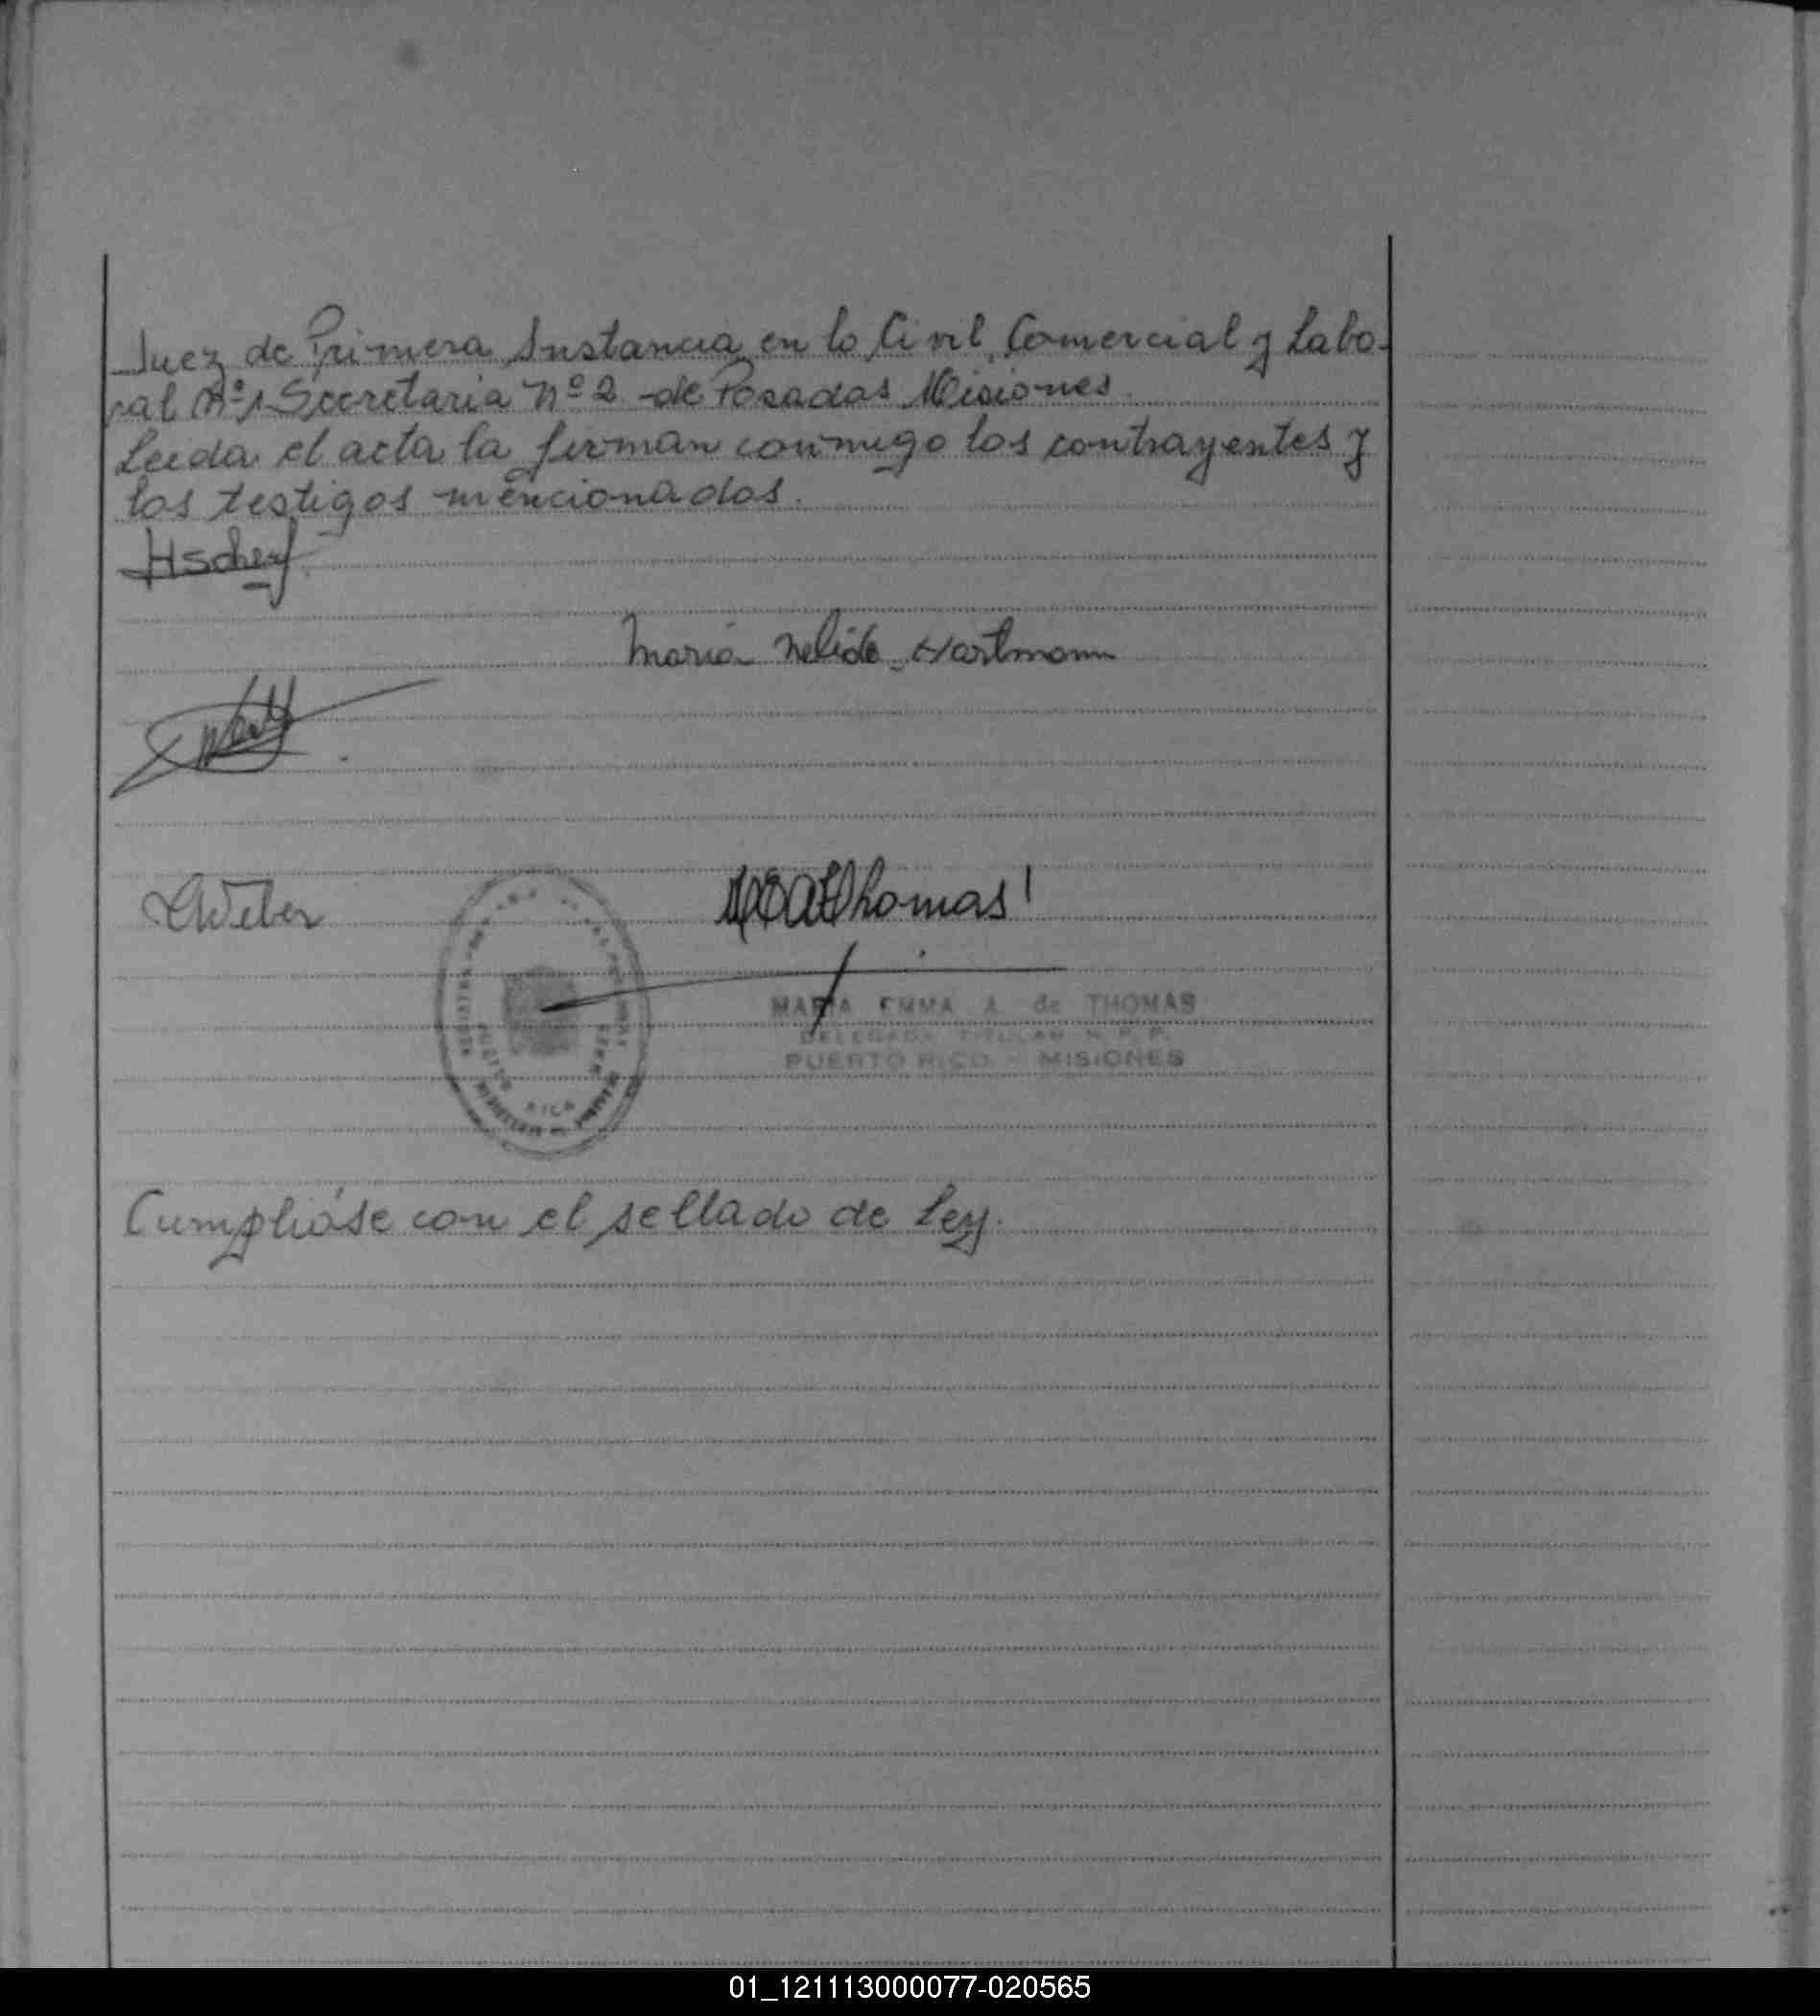 Juez de Primera Instancia en lo Civil, Comercial y Labo-
ral nº1 Secretaria nº 2 de Posadas Misiones.
Leida el acta la firman conmigo los contrayentes y
los testigos mencionados.
HScherf
Maria Nelida Hartmann
LWeber
MEAThomas
MARIA EMMA A. de THOMAS
DELEGADA TITULAR R. P. P.
PUERTO RICO - MISIONES
Cumplióse con el sellado de Ley.
01_121113000077-020565